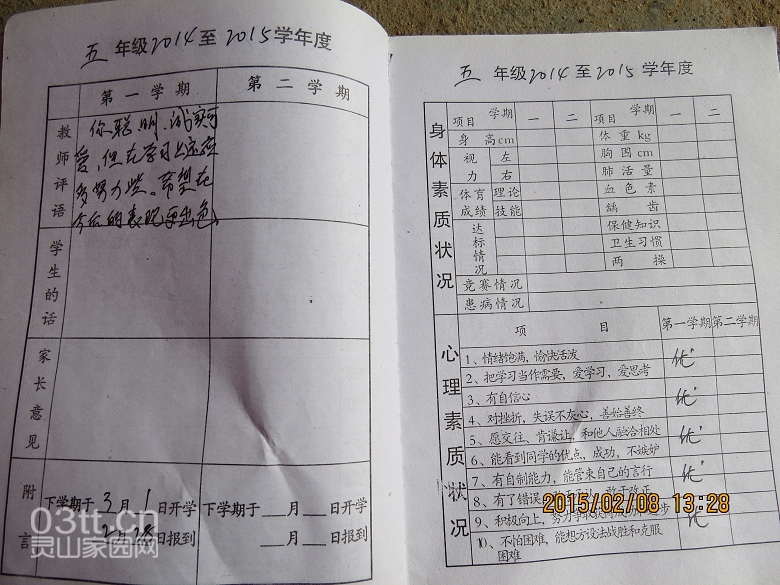 五 年级2014至2015学年度
第一学期 第二学期
教师评语
你聪明、诚实可
爱,但在学习上还应
多努力些。希望在
今后的表现更出色
学生的话
家长意见
附言
下学期于3月1日开学 下学期于__月__日开学
2月28日报到 __月__日报到
03tt.cn
灵山家园网
五 年级2014至2015学年度
身体素质状况
项目 学期 一 二 项目 学期 一 二
身高cm 体重kg
视力 左 胸围cm
右 肺活量
体育成绩 理论 血色素
技能 龋齿
达标情况 保健知识
卫生习惯
两操
竞赛情况
患病情况
心理素质状况
项目 第一学期 第二学期
1、情绪饱满,愉快活泼
2、把学习当作需要,爱学习,爱思考 优
3、有自信心
4、对挫折,失误不灰心,善始善终 优
5、愿交往,肯谦让,和他人融合相处
6、能看到同学的优点,成功,不嫉妒 优
7、有自制能力,能管束自己的言行
8、有了错误 优
2015/02/08 13:28
9、积极向上,努力争取 步 优
10、不怕困难,能想方设法战胜和克服
困难